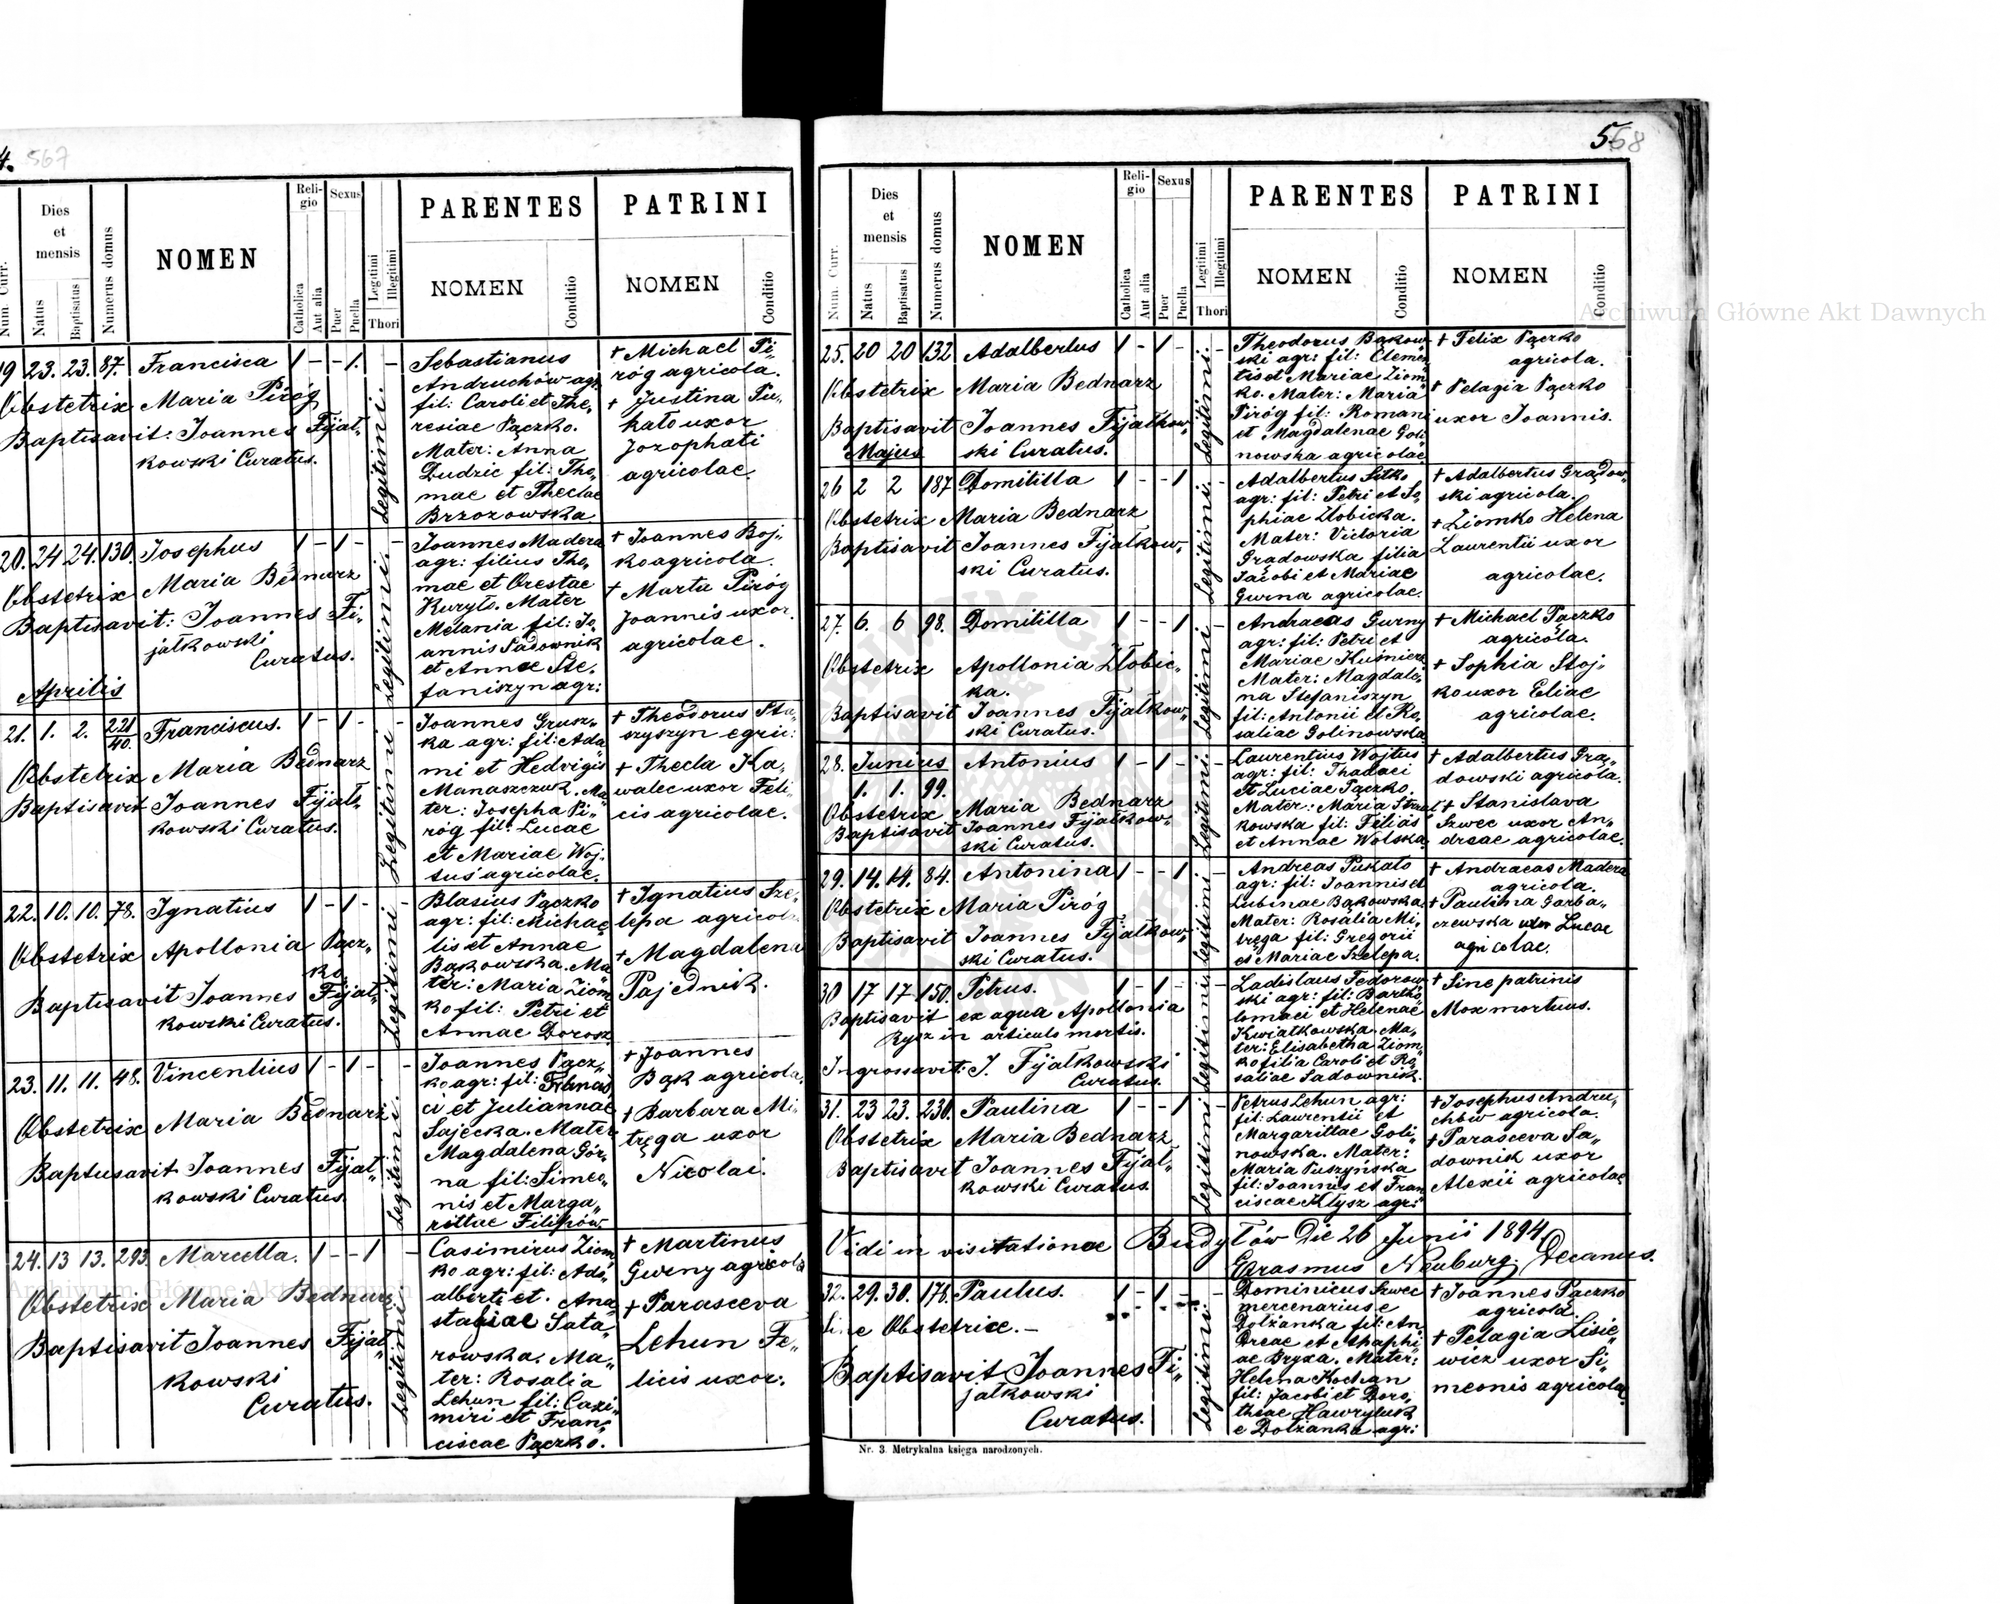 4. 567
Num. Curr.
Dies
et
mensis
Natus
Baptisatus
Numerus domus
NOMEN
Reli-
gio
Catholica
Aut alia
Sexus
Puer
Puella
Legtimi
Illegitimi
Thori
PARENTES
NOMEN
Conditio
PATRINI
NOMEN
Conditio
19 23. 23. 87. Francisca 1 - - 1. -
Obstetrix Maria Piróg
Baptisavit: Joannes Fijał„
kowski Curatus.
Legitimi.
Sebastianus
Andruchów agr.
fil: Caroli et The„
resiae Pączko.
Mater: Anna
Dudzic fil: Tho„
mae et Theclae
Brzozowska
+ Michael Pi„
róg agricola.
+ Justina Pu„
kało uxor
Jozophati
agricolae.
20. 24 24. 130. Josephus 1 - 1 - -
Obstetrix Maria Bednarz
Baptisavit: Joannes Fi„
jałkowski
Curatus.
Legitimi.
Joannes Madera
agr: filius Tho„
mae et Orestae
Kuryło. Mater
Melania fil: Jo„
annis Sadownik
et Annae Ste„
faniszyn agr:
+ Joannes Boj„
ko agricola.
+ Marta Piróg
Joannis uxor
agricolae.
Aprilis
21. 1. 2. 221/40. Franciscus. 1 - 1 - -
Obstetrix Maria Bednarz
Baptisavit Joannes Fijał„
kowski Curatus.
Legitimi
Joannes Grusz„
ka agr: fil: Ada
mi et Hedvigis
Manaszczuk. Ma„
ter: Josepha Pi„
róg fil: Lucae
et Mariae Woj„
tuś agricolae.
+ Theodorus Sta„
szyszyn egric:
+ Thecla Ka„
walec uxor Feli„
cis agricolae.
22. 10. 10. 78. Ignatius 1 - 1 - -
Obstetrix Apollonia Pącz„
ko.
Baptisavit Joannes Fijał„
kowski Curatus.
Legitimi
Blasius Pączko
agr: fil: Michae„
lis et Annae
Bąkowska. Ma„
ter: Maria Ziom
ko fil: Petri et
Annae Dorosz
+ Ignatius Sze„
lepa agricola
+ Magdalena
Pajednik.
23. 11. 11. 48. Vincentius 1 - 1 - -
Obstetrix Maria Bednarz
Baptusavit Joannes Fijał„
kowski Curatus
Legitimi.
Joannes Pącz„
ko agr: fil: Francis
ci et Juliannae
Sajecka. Mater
Magdalena Gór„
na fil: Simeo„
nis et Marga„
rittae Filipów
+ Joannes
Bąk agricola.
+ Barbara Mi„
tręga uxor
Nicolai.
24. 13 13. 293. Marcella. 1 - - 1 -
Obstetrix Maria Bednarz
Baptisavit Joannes Fijał„
kowski
Curatus.
Legitimi
Casimirus Ziom
ko agr: fil: Ada„
alberti et. Ana„
stasiae Sata„
rowska. Ma„
ter: Rosalia
Lehun fil: Casi„
miri et Fran„
ciscae Pączko.
+ Martinus
Gurny agricola
+ Parasceva
Lehun Fe„
licis uxor.
Archiwum Główne Akt Dawnych
5. 568
Num. Curr.
Dies
et
mensis
Natus
Baptisatus
Numerus domus
NOMEN
Reli-
gio
Catholica
Aut alia
Sexus
Puer
Puella
Legitimi
Illegitimi
Thori
PARENTES
NOMEN
Conditio
PATRINI
NOMEN
Conditio
Archiwum Główne Akt Dawnych
25. 20 20 132 Adalbertus 1 - 1 - -
Obstetrix Maria Bednarz
Baptisavit Joannes Fijałkow„
ski Curatus.
Legitimi.
Theodorus Bąkow„
ski agr: fil: Clemen„
tis et Mariae Ziom„
ko. Mater: Maria
Piróg fil: Romani
et Magdalenae Goli„
nowska agricolae
+ Felix Pączko
agricola.
+ Pelagia Pączko
uxor Joannis.
Majus
26 2 2 187 Domitilla 1 - - 1 -
Obstetrix Maria Bednarz
Baptisavit Joannes Fijałkow„
ski Curatus.
Legitimi.
Adalbertus Sitko
agr: fil: Petri et So„
phiae Złobicka.
Mater: Victoria
Gradowska filia
Jacobi et Mariae
Gurna agricolae.
+ Adalbertus Gradow„
ski agricola.
+ Ziomko Helena
Laurentii uxor
agricolae.
27. 6. 6 98. Domitilla 1 - - 1 -
Obstetrix Apollonia Złobic„
ka.
Baptisavit Joannes Fijałkow„
ski Curatus.
Legitimi
Andraeas Gurny
agr: fil: Petri et
Mariae Kuśnierz
Mater: Magdale„
na Stefaniszyn
fil: Antonii et Ro„
saliae Golinowska
+ Michael Pączko
agricola.
+ Sophia Stoj„
ko uxor Eliae
agricolae.
28. Junius Antonius 1 - 1 - -
1. 1. 99.
Obstetrix Maria Bednarz
Baptisavit Joannes Fijałkow„
ski Curatus.
Legitimi.
Laurentius Wojtus
agr: fil: Thadaei
et Luciae Pączko.
Mater: Maria
kowska fil: Filias
et Annae Wolska.
+ Adalbertus Gra„
dowski agricola.
+ Stanislava
Szwec uxor An„
dreae agricolae.
29. 14. 14. 84. Antonina 1 - - 1 -
Obstetrix Maria Piróg
Baptisavit Joannes Fijałkow„
ski Curatus.
legitimi
Andreas Pukało
agr: fil: Joannis et
Lubinae Bąkowska.
Mater: Rosalia Mi„
tręga fil: Gregorii
et Mariae Szelepa.
+ Andraeas Madera
agricola.
+ Paulina Garba„
czewska uxor Lucae
agricolae.
30 17 17 150. Petrus. 1 - 1 - -
Baptisavit ex aqua Apollonia
Rysz in articulo mortis.
Ingrossavit: J. Fijałkowski
Curatus.
Legitimi
Ladislaus Fedorow„
ski agr: fil: Barto„
lomaei et Helenae
Kwiatkowska. Ma„
ter: Elisabetha Ziom„
ko filia Caroli et Ro„
saliae Sadownik.
+ Sine patrinis
Mox mortuus.
31. 23 23. 230. Paulina 1 - - 1 -
Obstetrix Maria Bednarz
Baptisavit Joannes Fijał„
kowski Curatus.
Legitimi
Petrus Lehun agr:
fil: Laurentii et
Margarittae Goli„
nowska. Mater:
Maria Puszyńska
fil: Joannis et Fran
ciscae Kłysz agr:
+ Josephus Andru„
chów agricola.
+ Parasceva Sa„
downik uxor
Alexii agricolae
Vidi in visitatione Budyłów die 26 Junii 1894.
Erasmus Neuburg. Decanus.
32. 29. 30. 176. Paulus. 1 - 1 - -
Sine Obstetrice. -
Baptisavit Joannes Fi„
jałkowski
Curatus.
Legitimi.
Dominicus Szwec
mercenarius e
Dolżanka fil: An„
dreae et Ahaphi„
ae Bryxa. Mater:
Helena Kochan
fil: Jacobi et Doro„
theae Hawryluk
e Dolżanka agr:
+ Joannes Pączko
agricola.
+ Pelagia Lisie„
wicz uxor Si„
meonis agricolae
Nr. 3. Metrykalna księga narodzonych.